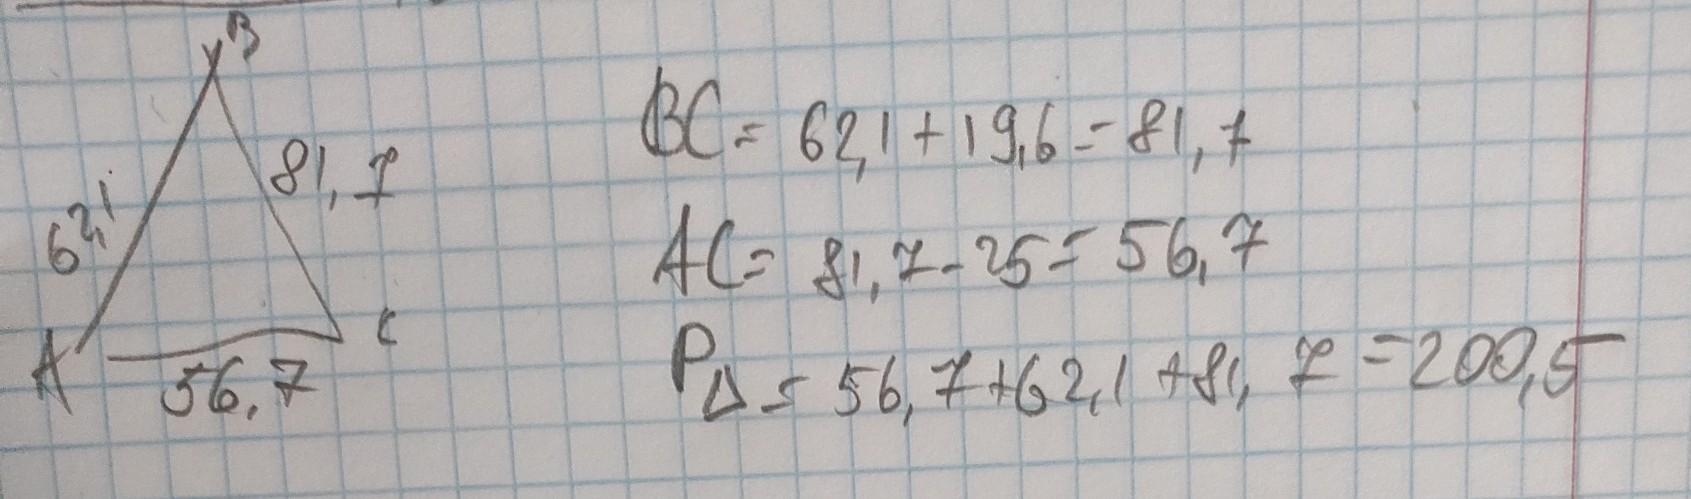 B
BC = 62,1 + 19,6 = 81,7
81,7
62,1
AC = 81,7 - 25 = 56,7
A
C
56,7
P△ = 56,7 + 62,1 + 81,7 = 200,5